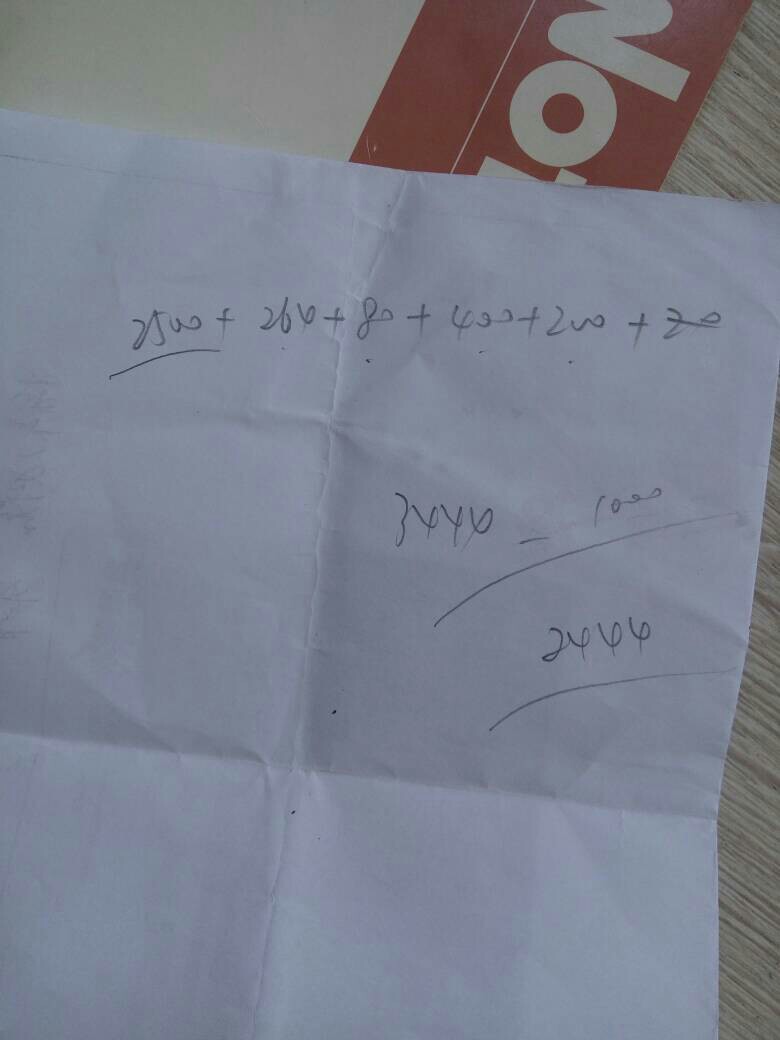 NO
2500 + 264 + 80 + 400 + 200 + 20
3444 - 1000
2444